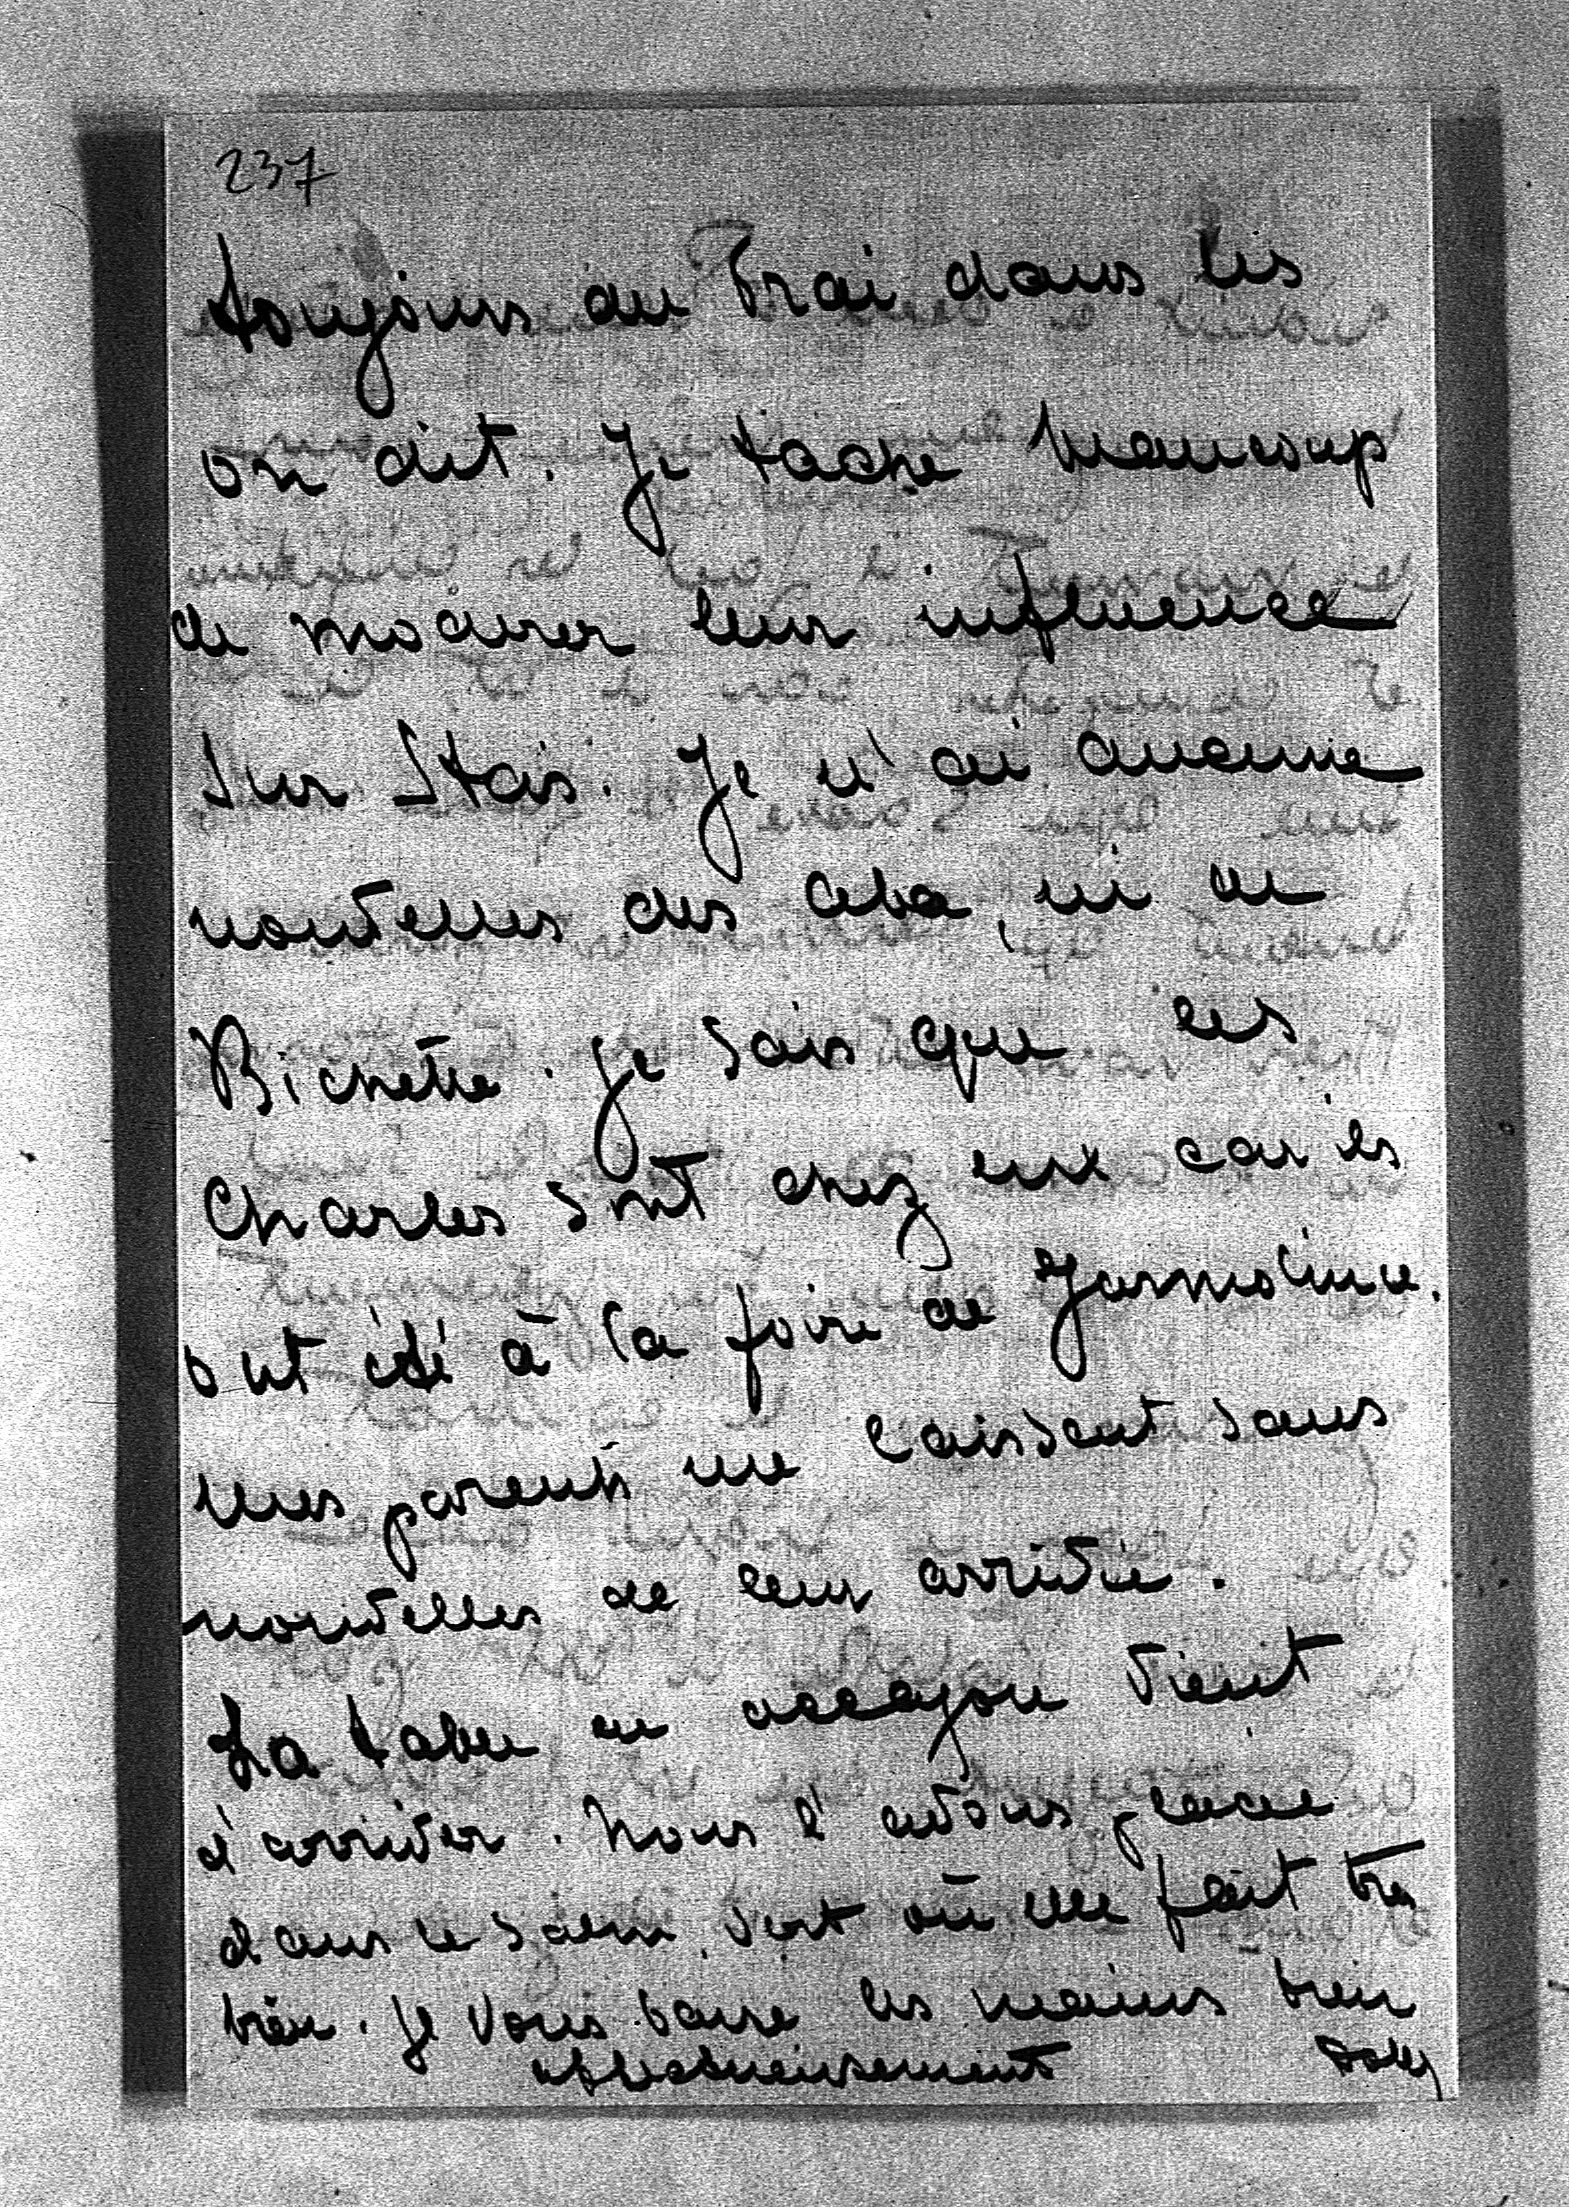 237
toujours du vrai dans les
on dit. Je tache beaucoup
de modirer leur influence
sur Stas. Je n'ai aucune
nouvelles des Aba, ni de
Bichette. Je sais que les
Charles sont chez eux car ils
ont été à la foire de Jarmolince.
Mes parents me laissent sans
nouvelles de leur arrivée.
La table en acajou vient
d'arriver. Nous l'avons placée
dans le salon vert où elle fait très
bien. Je vous baise les mains bien
affectueusement